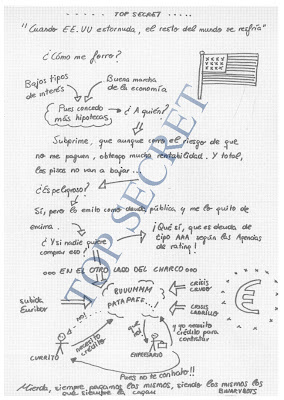 TOP SECRET
"Cuando EE.UU estornuda, el resto del mundo se resfría"
¿Cómo me forro?
Bajos tipos
de interés
Buena marcha
de la economía
Pues concedo
más hipotecas
¿A quién?
Subprime, que aunque corro el riesgo de que
no me paguen, obtengo mucha rentabilidad. Y total,
los pisos no van a bajar...
¿Es peligroso?
Sí, pero lo emito como deuda pública, y me lo quito de
encima.
¿Y si nadie quiere
comprar eso?
¡Qué sí, que es deuda de
tipo AAA según las Agencias
de rating!
TOP SECRET
... EN EL OTRO LADO DEL CHARCO...
BUUUMMM
PATAPAFF...!
subida
Euribor
CRISIS
CRISIS LADRILLO
€
no!
necesito
crédito
CURRITO
que no!
EMPRESARIO
y yo necesito
crédito para
contratar
Pues no te contrato!!
Mierda, siempre pagamos los mismos, siendo los mismos los
que siempre la cagan